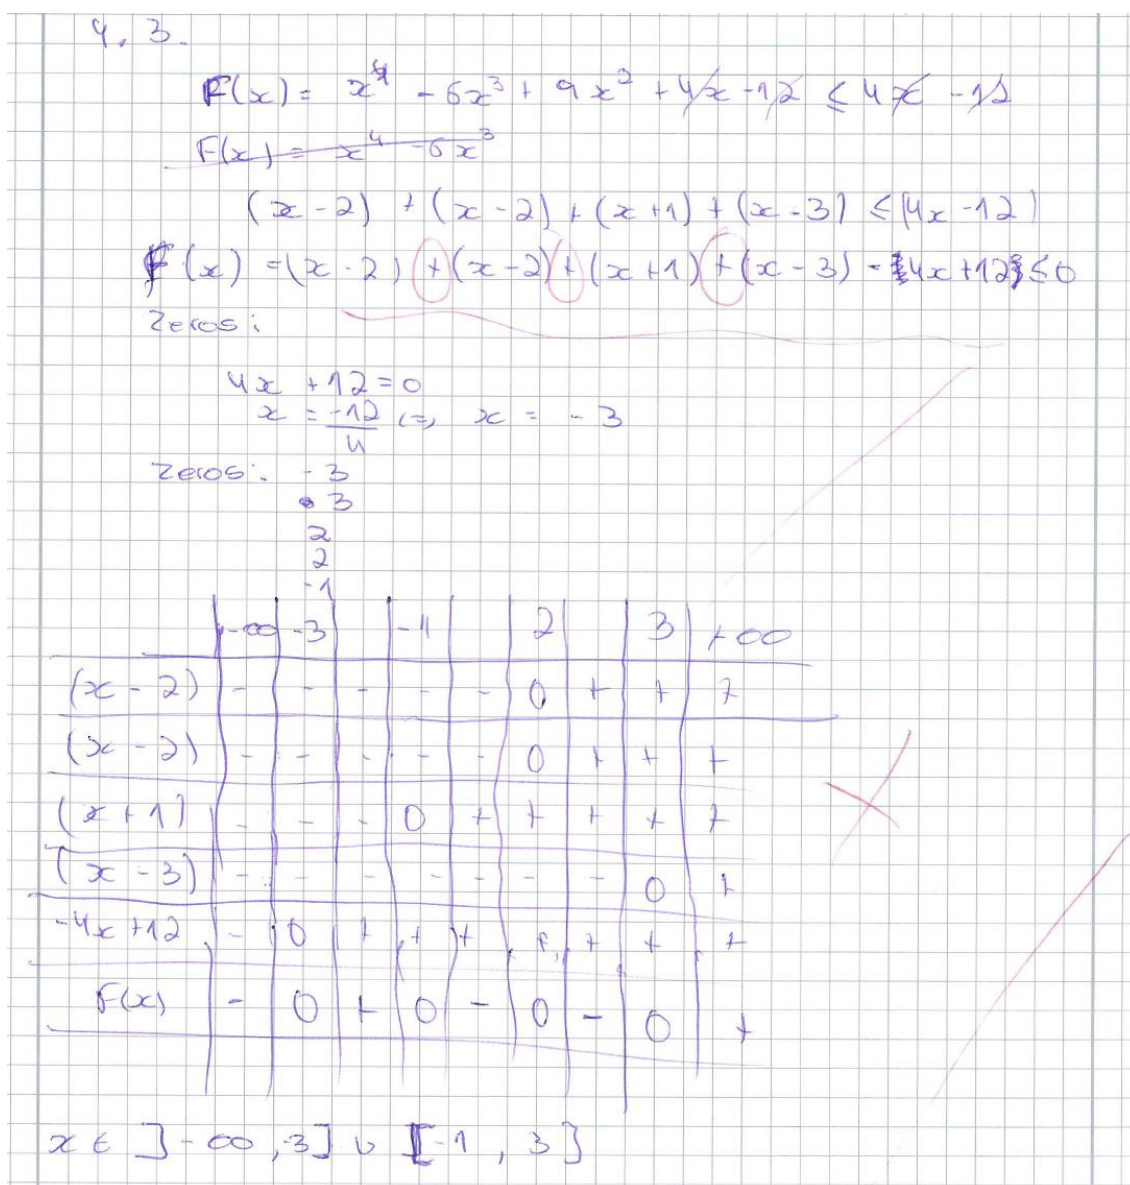 4. 3.
F(x) = x⁴ - 6x³ + 9x² + 4x - 12 ≤ 4x - 12
F(x) = x⁴ - 6x³
(x - 2) + (x - 2) + (x + 1) + (x - 3) ≤ (4x - 12)
F(x) = (x - 2) + (x - 2) + (x + 1) + (x - 3) - 4x + 12 ≤ 0
Zeros:
4x + 12 = 0
x = -12/4 (=) x = - 3
Zeros: - 3
3
2
2
-1
-∞ -3 -1 2 3 +∞
(x - 2) - - - - - 0 + + +
(x - 2) - - - - - 0 + + +
(x + 1) - - - 0 + + + + +
(x - 3) - - - - - - - 0 +
-4x + 12 - 0 + + + + + + +
F(x) - 0 + 0 - 0 - 0 +
x ∈ ]-∞, -3] ∪ [-1, 3]